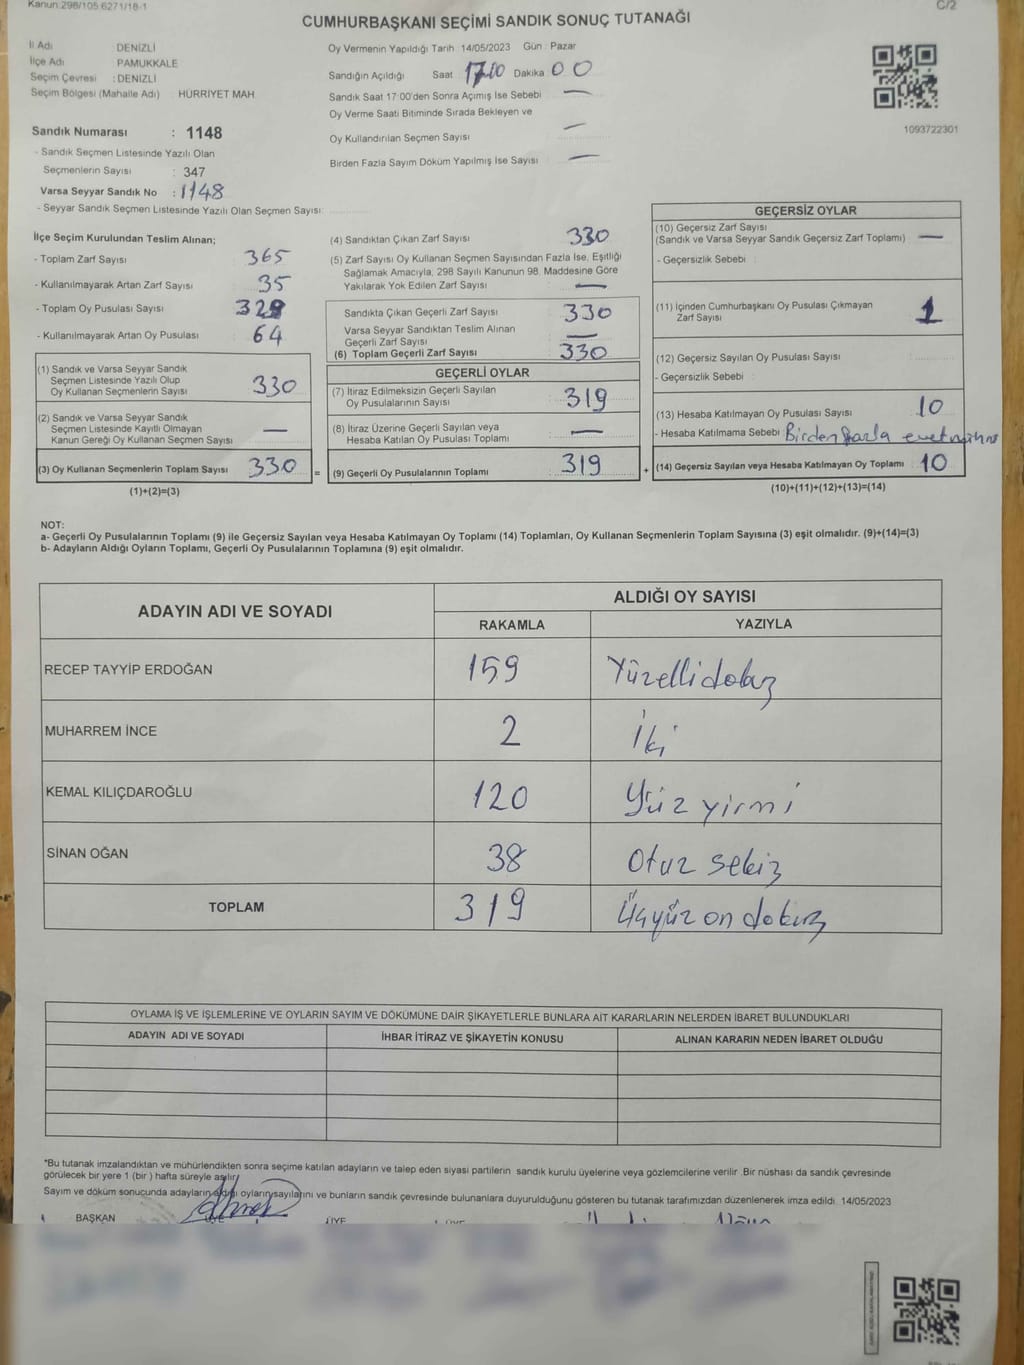 Kanun:298/105 6271/18-1
C/2
CUMHURBAŞKANI SEÇİMİ SANDIK SONUÇ TUTANAĞI
İl Adı DENİZLİ
İlçe Adı PAMUKKALE
Seçim Çevresi : DENİZLİ
Seçim Bölgesi (Mahalle Adı) : HÜRRİYET MAH.
Sandık Numarası : 1148
- Sandık Seçmen Listesinde Yazılı Olan
Seçmenlerin Sayısı : 347
Varsa Seyyar Sandık No : 1148
- Seyyar Sandık Seçmen Listesinde Yazılı Olan Seçmen Sayısı:
Oy Vermenin Yapıldığı Tarih : 14/05/2023 Gün : Pazar
Sandığın Açıldığı Saat 17.00 Dakika 00
Sandık Saat 17:00'den Sonra Açımış İse Sebebi —
Oy Verme Saati Bitiminde Sırada Bekleyen ve
Oy Kullandırılan Seçmen Sayısı —
Birden Fazla Sayım Döküm Yapılmış İse Sayısı —
1093722301
İlçe Seçim Kurulundan Teslim Alınan;
- Toplam Zarf Sayısı 365
- Kullanılmayarak Artan Zarf Sayısı 35
- Toplam Oy Pusulası Sayısı
- Kullanılmayarak Artan Oy Pusulası 64
(1) Sandık ve Varsa Seyyar Sandık
Seçmen Listesinde Yazılı Olup
Oy Kullanan Seçmenlerin Sayısı 330
(2) Sandık ve Varsa Seyyar Sandık
Seçmen Listesinde Kayıtlı Olmayan
Kanun Gereği Oy Kullanan Seçmen Sayısı —
(3) Oy Kullanan Seçmenlerin Toplam Sayısı 330 =
(1)+(2)=(3)
(4) Sandıktan Çıkan Zarf Sayısı 330
(5) Zarf Sayısı Oy Kullanan Seçmen Sayısından Fazla İse, Eşitliği
Sağlamak Amacıyla, 298 Sayılı Kanunun 98. Maddesine Göre
Yakılarak Yok Edilen Zarf Sayısı —
Sandıkta Çıkan Geçerli Zarf Sayısı 330
Varsa Seyyar Sandıktan Teslim Alınan
Geçerli Zarf Sayısı —
(6) Toplam Geçerli Zarf Sayısı 330
GEÇERLİ OYLAR
(7) İtiraz Edilmeksizin Geçerli Sayılan
Oy Pusulalarının Sayısı 319
(8) İtiraz Üzerine Geçerli Sayılan veya
Hesaba Katılan Oy Pusulası Toplamı —
(9) Geçerli Oy Pusulalarının Toplamı 319 +
GEÇERSİZ OYLAR
(10) Geçersiz Zarf Sayısı
(Sandık ve Varsa Seyyar Sandık Geçersiz Zarf Toplamı) —
- Geçersizlik Sebebi :
(11) İçinden Cumhurbaşkanı Oy Pusulası Çıkmayan
Zarf Sayısı 1
(12) Geçersiz Sayılan Oy Pusulası Sayısı
- Geçersizlik Sebebi :
(13) Hesaba Katılmayan Oy Pusulası Sayısı 10
- Hesaba Katılmama Sebebi : Birden fazla evet mühr
(14) Geçersiz Sayılan veya Hesaba Katılmayan Oy Toplamı 10
(10)+(11)+(12)+(13)=(14)
NOT:
a- Geçerli Oy Pusulalarının Toplamı (9) ile Geçersiz Sayılan veya Hesaba Katılmayan Oy Toplamı (14) Toplamları, Oy Kullanan Seçmenlerin Toplam Sayısına (3) eşit olmalıdır. (9)+(14)=(3)
b- Adayların Aldığı Oyların Toplamı, Geçerli Oy Pusulalarının Toplamına (9) eşit olmalıdır.
ADAYIN ADI VE SOYADI ALDIĞI OY SAYISI
RAKAMLA YAZIYLA
RECEP TAYYİP ERDOĞAN 159 Yüzellidokuz
MUHARREM İNCE 2 İki
KEMAL KILIÇDAROĞLU 120 Yüz yirmi
SİNAN OĞAN 38 Otuz sekiz
TOPLAM 319 Üçyüz on dokuz
OYLAMA İŞ VE İŞLEMLERİNE VE OYLARIN SAYIM VE DÖKÜMÜNE DAİR ŞİKAYETLERLE BUNLARA AİT KARARLARIN NELERDEN İBARET BULUNDUKLARI
ADAYIN ADI VE SOYADI İHBAR İTİRAZ VE ŞİKAYETİN KONUSU ALINAN KARARIN NEDEN İBARET OLDUĞU
*Bu tutanak imzalandıktan ve mühürlendikten sonra seçime katılan adayların ve talep eden siyasi partilerin sandık kurulu üyelerine veya gözlemcilerine verilir .Bir nüshası da sandık çevresinde
görülecek bir yere 1 (bir ) hafta süreyle asılır.
Sayım ve döküm sonucunda adayların aldığı oyların sayılarını ve bunların sandık çevresinde bulunanlara duyurulduğunu gösteren bu tutanak tarafımızdan düzenlenerek imza edildi. 14/05/2023
BAŞKAN ÜYE